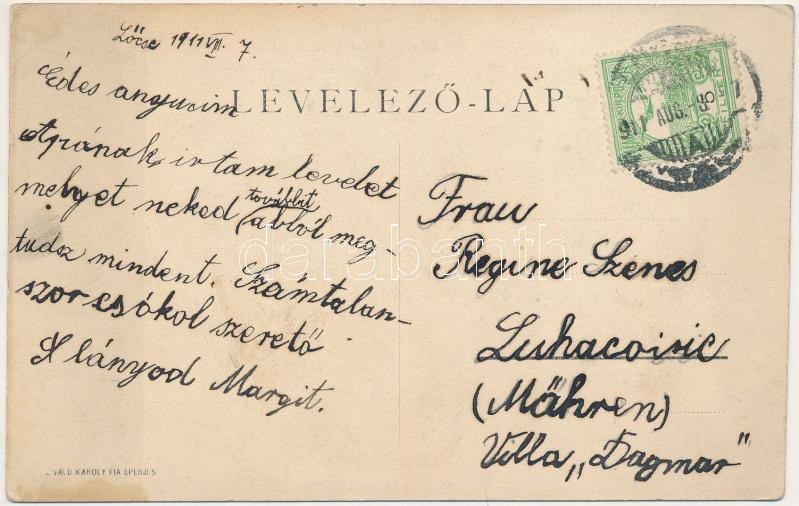 Lőcse 1911 VIII. 7.
LEVELEZŐ-LAP
Édes anyucim
Apának irtam levelet
melyet neked továbbit
abból meg-
tudsz mindent. Számtalan-
szor csókol szerető
lányod Margit.
Frau
Regine Szenes
Luhacovic
(Mähren)
Villa „Dagmar"
911 AUG.
DIVALD KÁROLY FIA EPERJES
darabanth